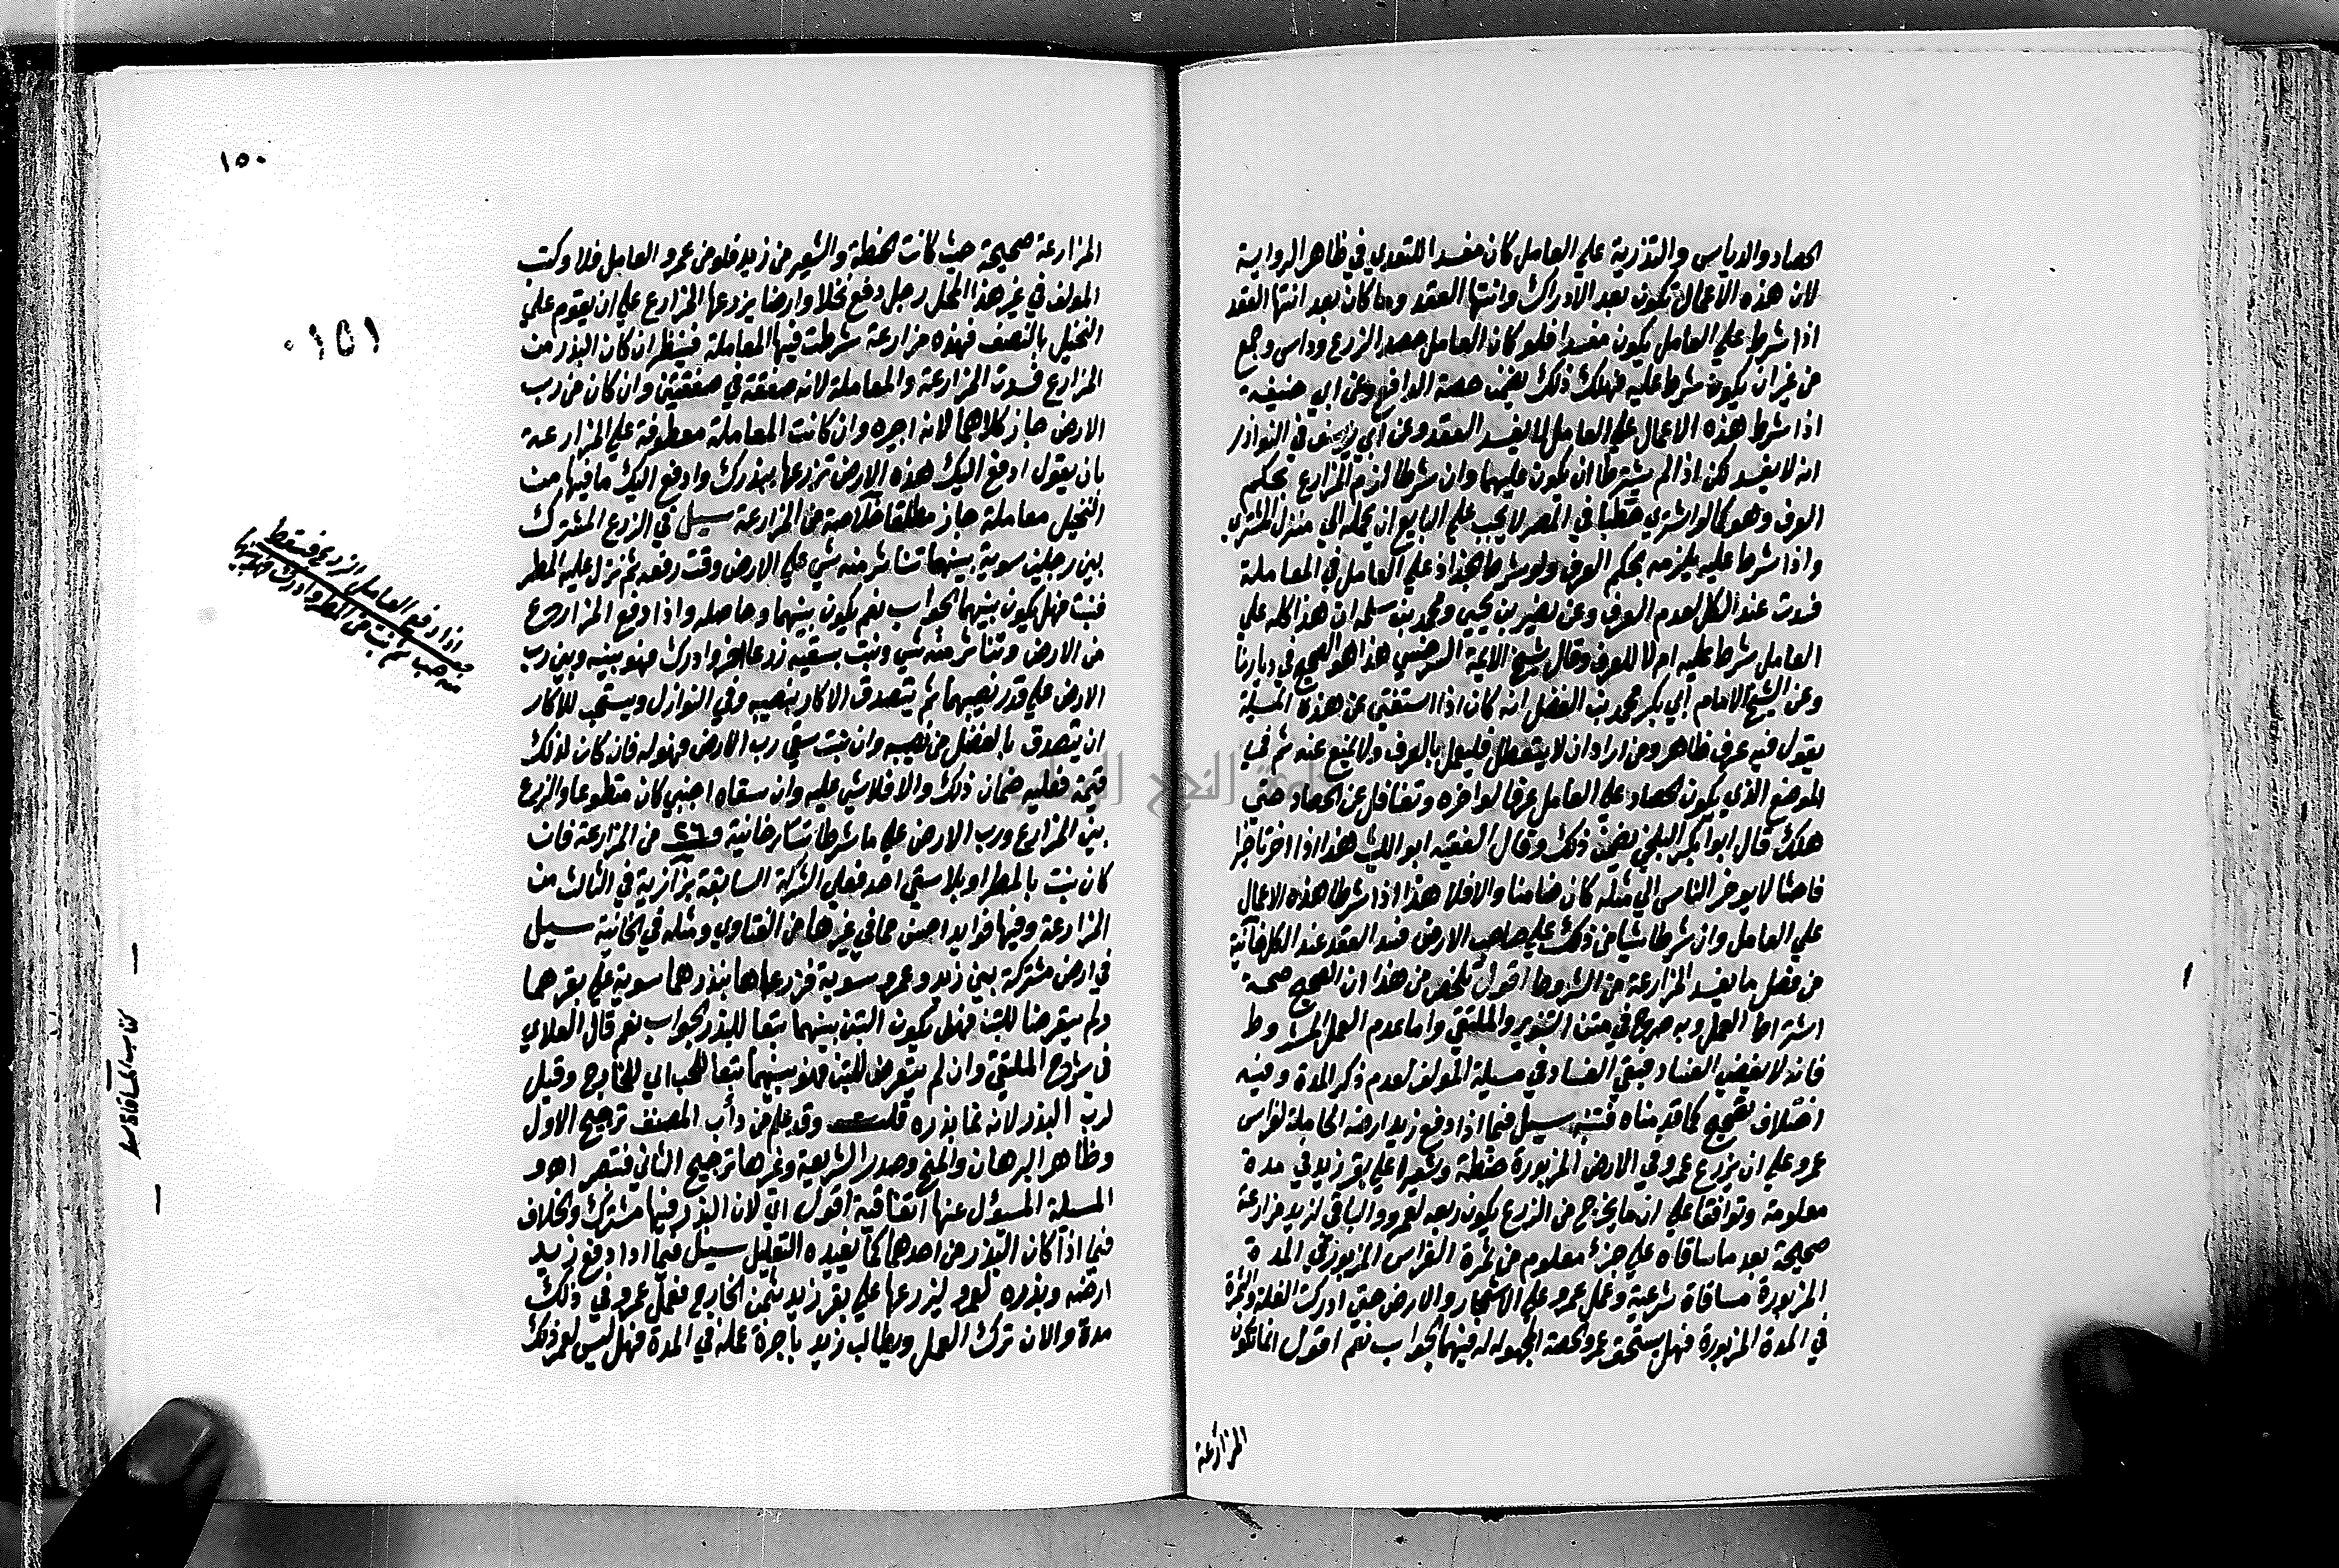 الحصاد والدياس والتذرية علي العامل كان مفسدا للتعدي في ظاهر الرواية
لان هذه الاعمال تكون بعد الادراك وانتها العقد وما كان بعد انتها العقد
اذا شرط علي العامل يكون مفسدا فلو كان العامل حصد الزرع وداس وجمع
من غير ان يكون شرط عليه فهلك ذلك يضمن حصة الدافع وعن ابي حنيفة
اذا شرط هذه الاعمال علي العامل لا يفسد العقد وعن ابي يوسف في النوادر
انه لا يفسد لكن اذا لم يشترطا ان يكون عليهما وان شرطا لزم المزارع بحكم
العرف وهو كما لو اشتري حطبا في المصر لا يجب علي البايع ان يحمله الي منزل المشتري
واذا شرط عليه يلزمه بحكم العرف ولو شرط الجذاذ علي العامل في المعاملة
فسدت عند الكل لعدم العرف وعن نصير بن يحيي ومحمد بن سلمه ان هذا كله علي
العامل شرط عليه ام لا للعرف وقال شيخ الايمة السرخسي هذا هو الصحيح في ديارنا
وعن الشيخ الامام ابي بكر محمد بن الفضل انه كان اذا استفتي عن هذه المسيلة
يقول فيه عرف ظاهر ومن اراد ان لا يتعطل فليعمل بالعرف ولا يمنع عنه ثم في
الموضع الذي يكون الحصاد علي العامل عرفا لو اخره وتغافل عن الحصاد حتي
هلك قال ابو بكر البلخي يضمن ذلك وقال الفقيه ابو الليث هذا اذا اخر تاخيرا
فاحشا لا يوخر الناس الي مثله كان ضامنا والا فلا هذا اذا شرط هذه الاعمال
علي العامل وان شرطا شيا من ذلك علي صاحب الارض فسد العقد عند الكل خانية
من فصل ما يفسد المزارعة من الشروط اقول تلخص من هذا ان الصحيح صحة
اشتراط العمل وبه صرح في متن التنوير والملتقي واما عدم العمل المشروط
فانه لا يقضي الفساد فبقي الفساد في مسيلة المولف لعدم ذكر المدة وفيه
اختلاف تصحيح كما قدمناه فتنبه سيل فيما اذا دفع زيد ارضه الحاملة لغراس
عمرو علي ان يزرع عمرو في الارض المزبورة حنطة وشعيرا علي بقر زيد في مدة
معلومة وتوافقا علي ان ما يخرج من الزرع يكون ربعه لعمرو والباقي لزيد مزارعة
صحيحة بعد ما ساقاه علي جزء معلوم من ثمرة الغراس المزبور في المدة
المزبورة مساقاة شرعية وعمل عمرو علي الاشجار والارض حتي ادركت الغلة والثمرة
في المدة المزبورة فهل يستحق عمرو الحصة المجهولة له فيهما الجواب نعم اقول انما تكون
المزارعة
١٥٠
١٥١
المزارعة صحيحة حيث كانت الحنطة والشعير من زيد فلو من عمرو العامل فلا وكتب
المولف في غير هذا المحل رجل دفع نخلا وارضا يزرعها المزارع علي ان يقوم علي
النخيل بالنصف فهذه مزارعة شرطت فيها المعاملة فينظر ان كان البذر من
المزارع فسدت المزارعة والمعاملة لانه صفقة في صفقتين وان كان من رب
الارض جاز كلاهما لانه اجره وان كانت المعاملة معطوفة علي المزارعة
بان يقول ادفع اليك هذه الارض تزرعها ببذرك وادفع اليك ما فيها من
النخيل معاملة جاز مطلقا خلاصة من المزارعة سيل في الزرع المشترك
بين رجلين سوية بينهما تناثر منه شي علي الارض وقت رفعه ثم نزل عليه المطر
فنبت فهل يكون بينهما الجواب نعم يكون بينهما وحاصله واذا دفع المزارع
من الارض وتناثر منه شي ونبت بسقيه زرعا اخر وادرك فهو بينه وبين رب
الارض علي قدر نصيبهما ثم يتصدق الاكار بنصيبه وفي النوازل ويستحب للاكار
ان يتصدق بالفضل من نصيبه وان نبت بسقي رب الارض فهو له فان كان لذلك
قيمة فعليه ضمان ذلك والا فلا شي عليه وان سقاه اجنبي كان متطوعا والزرع
بين المزارع ورب الارض علي ما شرطا تتارخانية و ٢٦ من المزارعة فان
كان نبت بالمطر او بلا سقي احد فعلي الشركة السابقة بزازية في الثالث من
المزارعة وفيها فوايد احسن مما في غيرها من الفتاوي ومثله في الخانية سيل
في ارض مشتركة بين زيد وعمرو سوية فزرعاها ببذرهما سوية علي بقرهما
ولم يتعرضا للتبن فهل يكون التبن بينهما تبعا للبذر الجواب نعم قال العلاي
في شرح الملتقي وان لم يتعرض للتبن فهو بينهما تبعا للحب اي للخارج وقيل
لرب البذر لانه نما بذره قلت وقد علم من دأب المصنف ترجيح الاول
وظاهر البرهان والمنح وصدر الشريعة وغرها ترجيح الثاني فتبصر اه و
المسيلة المسئول عنها اتفاقية اقول اي لان البذر فيها مشترك والخلاف
فيما اذا كان البذر من احدهما كما يفيده التعليل سيل فيما اذا دفع زيد
ارضه وبذره لعمرو ليزرعها علي بقر زيد بثمن الخارج فعمل عمرو في ذلك
مدة والان ترك العمل ويطالب زيد باجرة عمله في المدة فهل ليس لعمرو ذلك
اذا دفع العامل الزرع فسقط
منه حب ثم نبت من المطر وادرك فهو بينهما
كتاب المساقاة